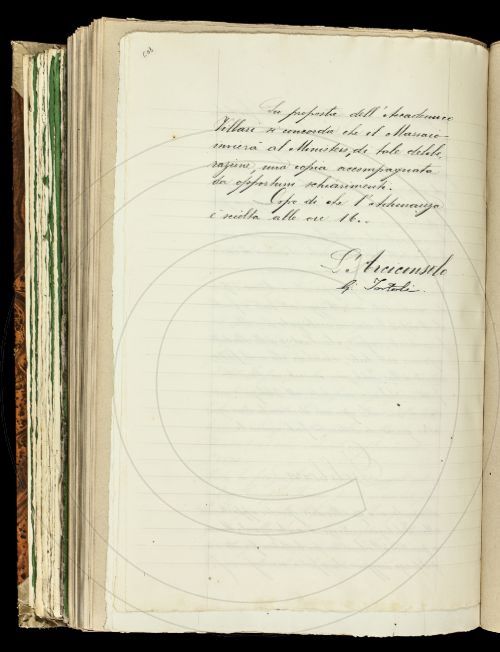 Su proposta dell'Accademico
Villari si concorda che il Massaco-
invierà al Ministero, di tale delibe,
razione, una copia accompagnata
da opportuni schiarimenti.
Dopo di che l'Adunanza
è sciolta alle ore 16..
L'Arciconsolo
G. Tortoli.